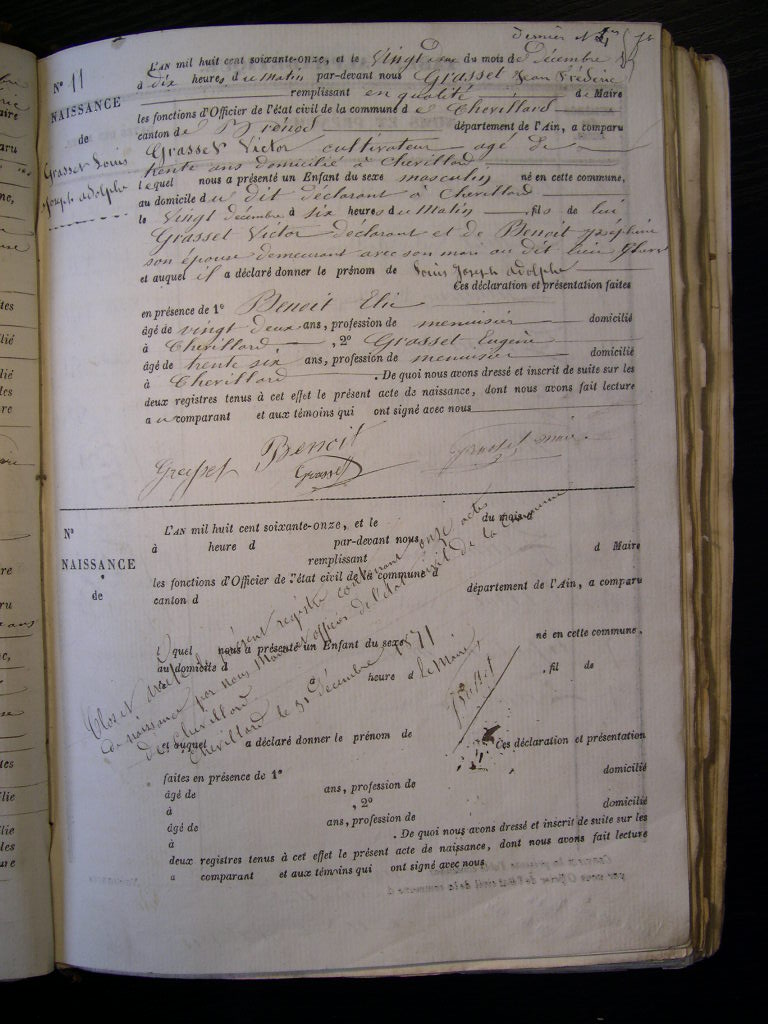 Dernier
N° 11
NAISSANCE
de
Grasset Louis
Joseph Adolphe
L'AN mil huit cent soixante-onze, et le Vingt du mois de Décembre
à dix heures du Matin par-devant nous Grasset Jean Frédéric
remplissant en qualité de Maire
les fonctions d'Officier de l'état civil de la commune de Chevillard
canton de Brénod département de l'Ain, a comparu
Grasset Victor cultivateur agé de
trente ans domicilié à Chevillard
lequel nous a présenté un Enfant du sexe masculin né en cette commune,
au domicile du dit déclarant à Chevillard
le Vingt décembre à six heures du Matin fils de lui
Grasset Victor déclarant et de Benoit Joséphine
son épouse demeurant avec son mari au dit lieu
et auquel il a déclaré donner le prénom de Louis Joseph Adolphe
Ces déclaration et présentation faites
en présence de 1° Benoit Elie
âgé de vingt deux ans, profession de menuisier domicilié
à Chevillard , 2° Grasset Eugène
âgé de trente six ans, profession de menuisier domicilié
à Chevillard . De quoi nous avons dressé et inscrit de suite sur les
deux registres tenus à cet effet le présent acte de naissance, dont nous avons fait lecture
au comparant et aux témoins qui ont signé avec nous
Grasset Benoit Grasset maire
Grasset
N°
NAISSANCE
de
L'AN mil huit cent soixante-onze, et le du mois d
à heure d par-devant nous
remplissant d Maire
les fonctions d'Officier de l'état civil de la commune d
canton d département de l'Ain, a comparu
lequel nous a présenté un Enfant du sexe né en cette commune,
au domicile d
à heure d , fil de
et auquel a déclaré donner le prénom de
Ces déclaration et présentation
faites en présence de 1°
âgé de ans, profession de domicilié
à , 2°
âgé de ans, profession de domicilié
à . De quoi nous avons dressé et inscrit de suite sur les
deux registres tenus à cet effet le présent acte de naissance, dont nous avons fait lecture
a comparant et aux témoins qui ont signé avec nous
Clos et le présent registre contenant onze actes
de naissance par nous Maire et officier de l'état civil de la Commune
de Chevillard
Chevillard le 31 décembre 1871 Le Maire
Grasset